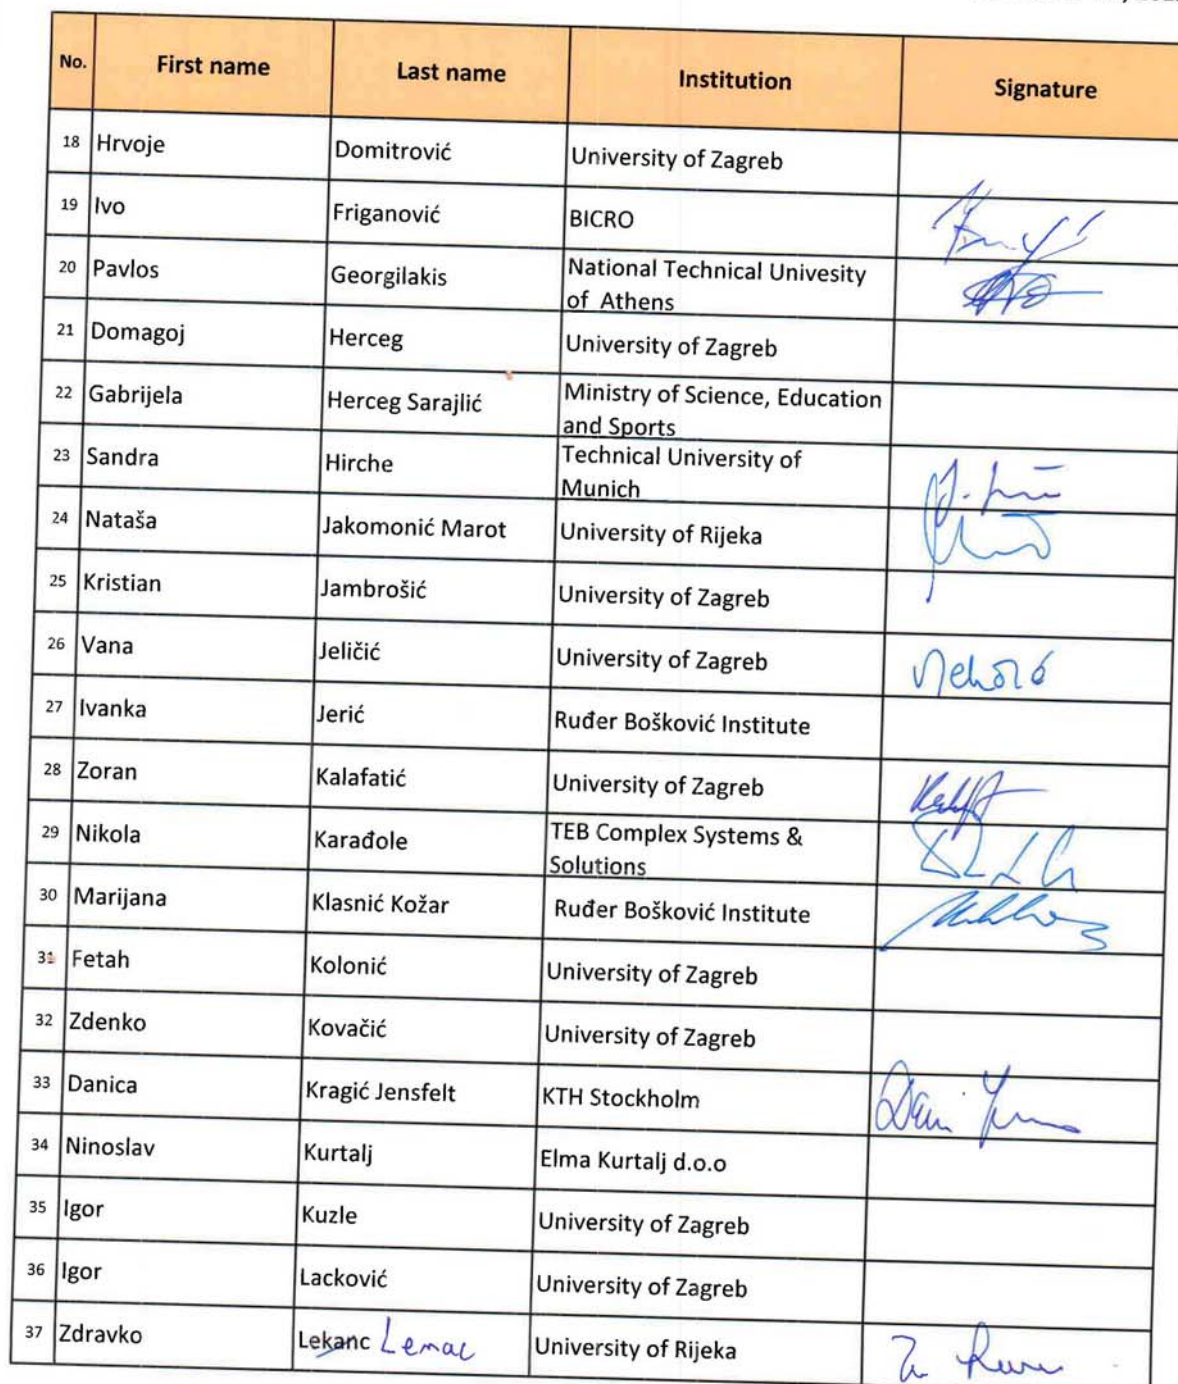 No. First name Last name Institution Signature
18 Hrvoje Domitrović University of Zagreb
19 Ivo Friganović BICRO
20 Pavlos Georgilakis National Technical Univesity
of Athens
21 Domagoj Herceg University of Zagreb
22 Gabrijela Herceg Sarajlić Ministry of Science, Education
and Sports
23 Sandra Hirche Technical University of
Munich
24 Nataša Jakomonić Marot University of Rijeka
25 Kristian Jambrošić University of Zagreb
26 Vana Jeličić University of Zagreb
27 Ivanka Jerić Ruđer Bošković Institute
28 Zoran Kalafatić University of Zagreb
29 Nikola Karađole TEB Complex Systems &
Solutions
30 Marijana Klasnić Kožar Ruđer Bošković Institute
31 Fetah Kolonić University of Zagreb
32 Zdenko Kovačić University of Zagreb
33 Danica Kragić Jensfelt KTH Stockholm
34 Ninoslav Kurtalj Elma Kurtalj d.o.o
35 Igor Kuzle University of Zagreb
36 Igor Lacković University of Zagreb
37 Zdravko Lekanc Lenac University of Rijeka